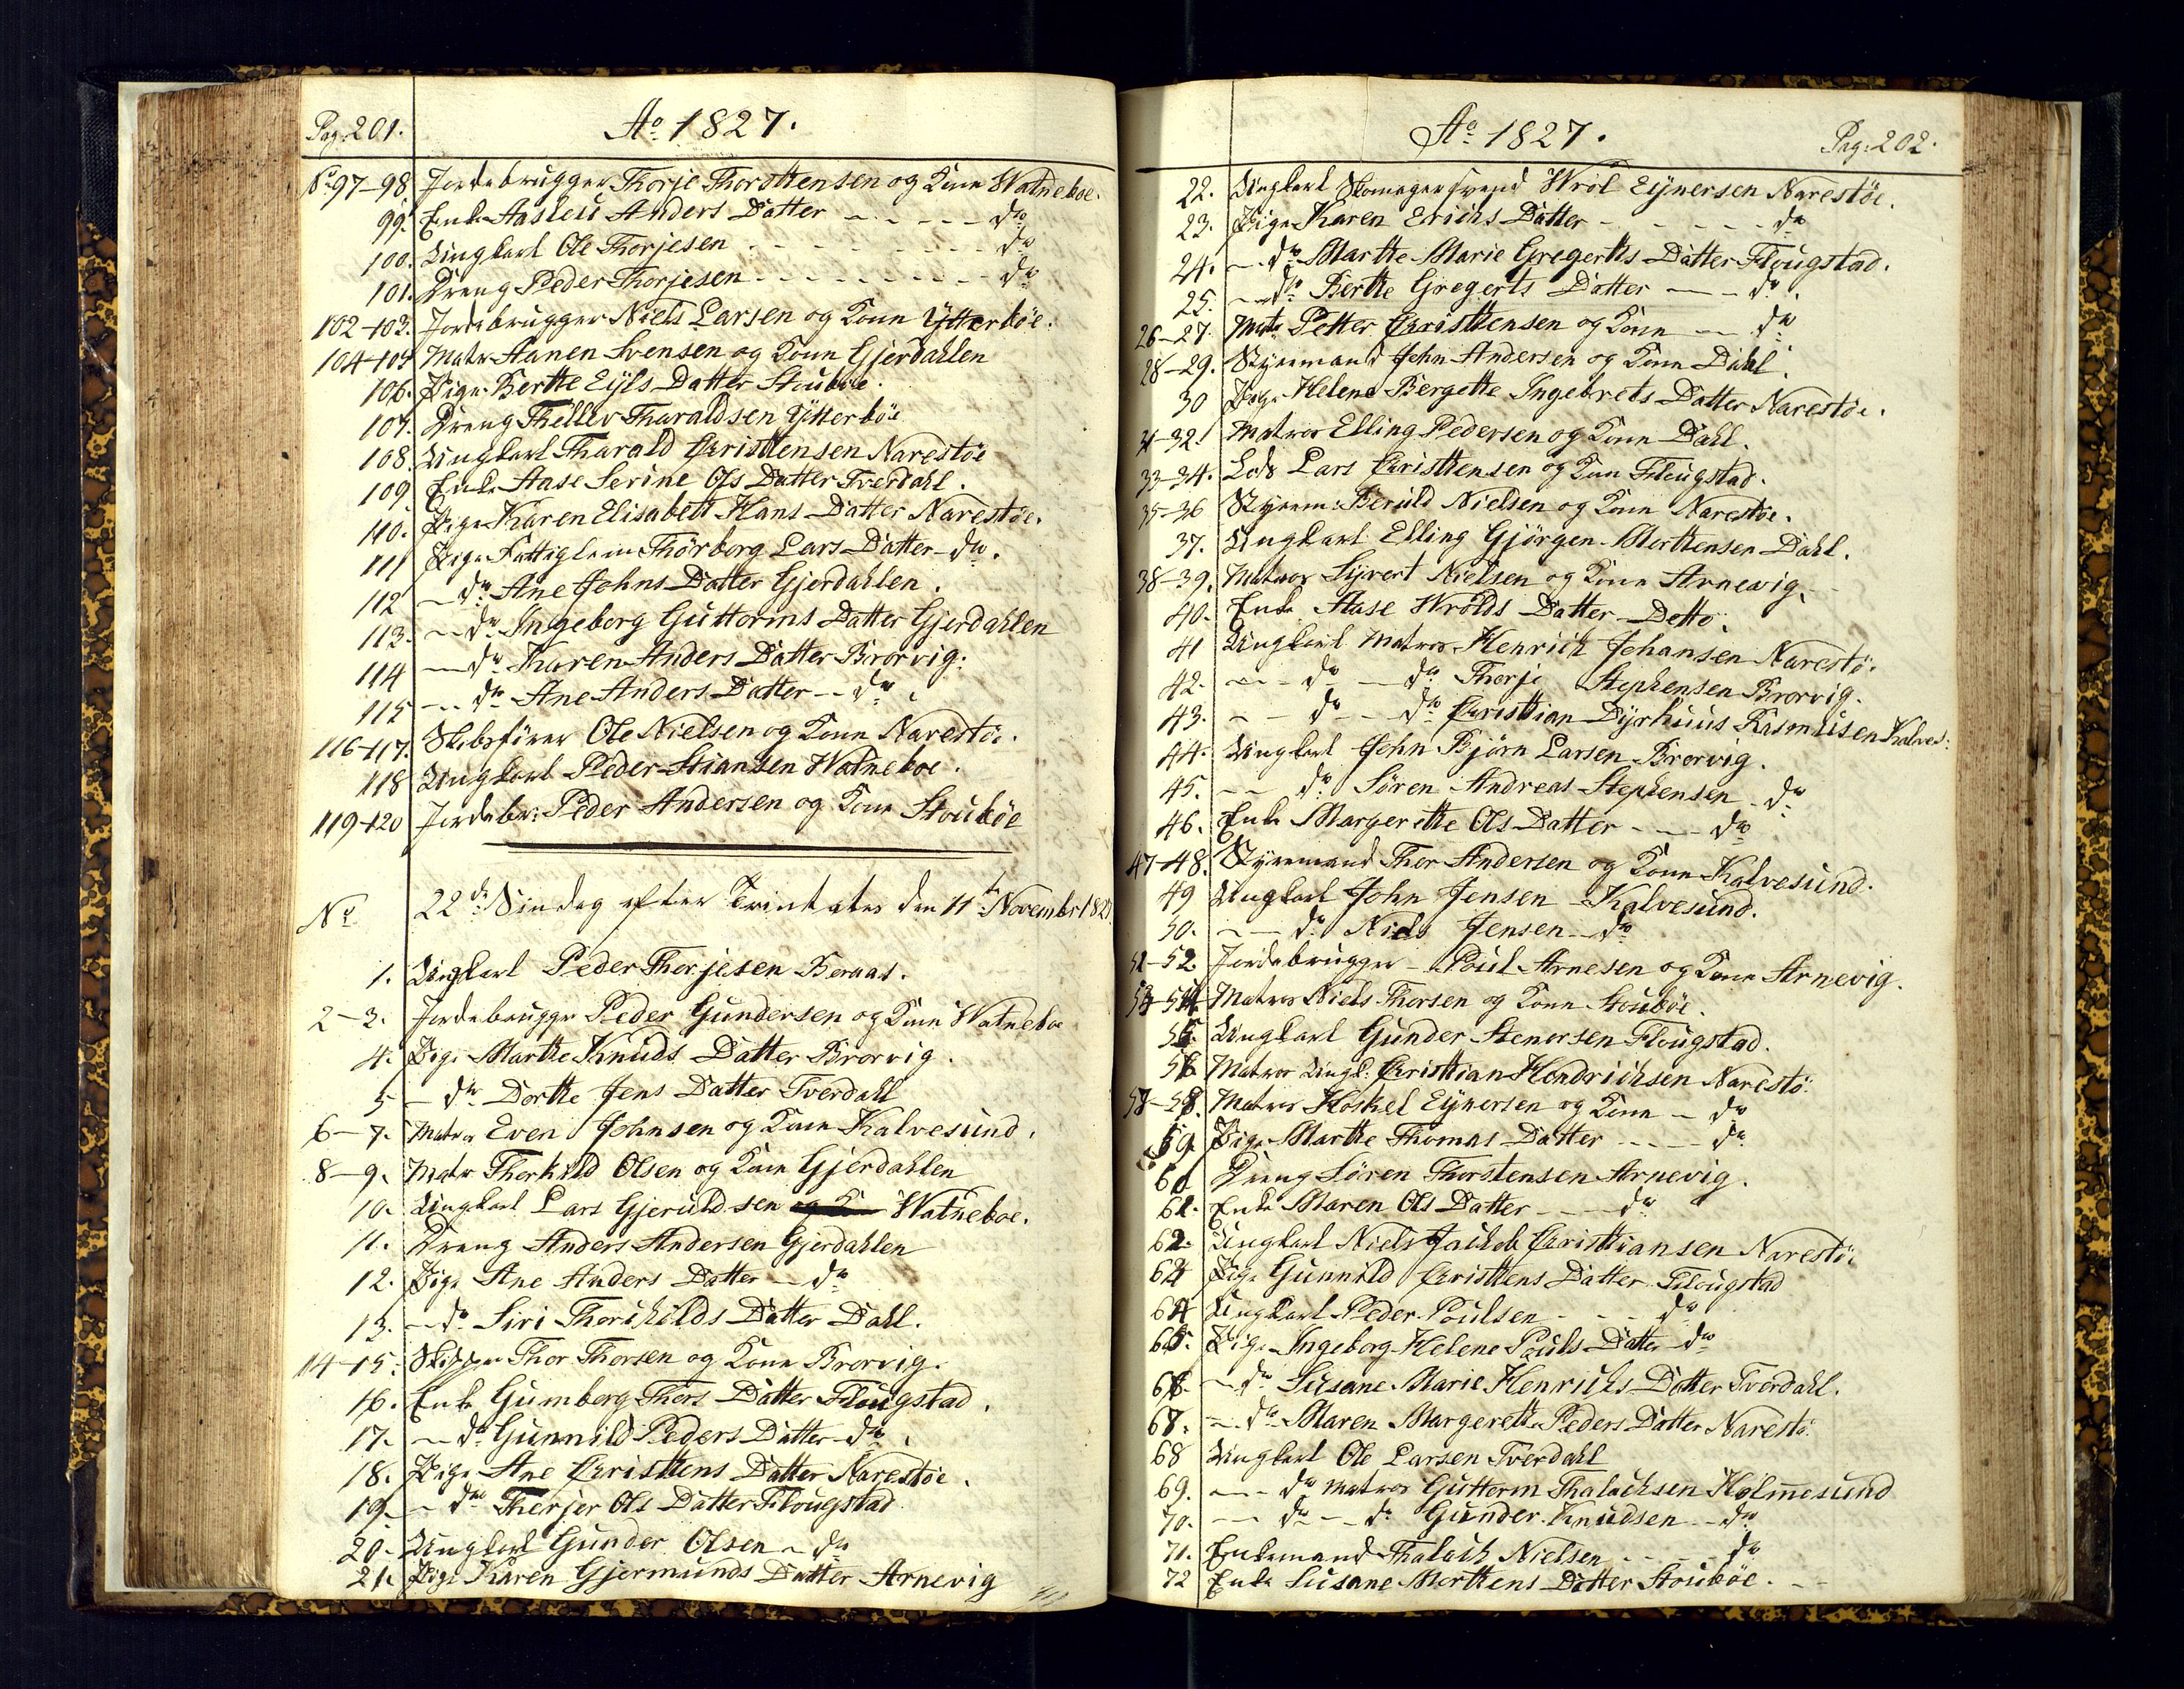 Pag: 201. Ao 1827.
No 97-98 Jordebrugger Thorje Thorstensen og Kone Watneboe.
99. Enke Aasleu Anders Datter - - - - - do
100. Ungkarl Ole Thorjesen - - - - - - - do
101. Dreng Peder Thorjesen - - - - - - - do
102-103. Jordebrugger Niels Larsen og Kone Ytterböe.
104-105 Matr Aanen Svensen og Kone Gjerdahlen
106. Pige Berthe Eyls Datter Stouböe.
107. Dreng Thellev Tharaldsen Ytterböe
108. Ungkarl Tharald Christensen Narestöe
109 Enke Aase Serine Ols Datter Tverdahl.
110. Pige Karen Elisabett Hans Datter Narestöe.
111 Pige Fattiglem Thörborg Lars Datter - do.
112 - do Ane Johns Datter Gjerdahlen.
113. - do Ingeborg Guttorms Datter Gjerdahlen
114 - do Karen Anders Datter Brorvig.
115 - do Ane Anders Datter - - do.
116-117. Skibsförer Ole Nielsen og Kone Narestöe.
118 Ungkarl Peder Stiansen Watneboe.
119-120 Jordebr: Peder Andersen og Kone Stouböe
No 22de Söndag efter Trinitates den 11te Novembr 1827
1. Ungkarl Peder Thorjesen Beraas.
2-3. Jordebrugger Peder Gundersen og Kone Watneboe
4. Pige Marthe Knuds Datter Brorvig.
5 - do Dorthe Jens Datter Tverdahl
6-7. Matros Even Johnsen og Kone Kalvesund.
8-9. Matr Thorkild Olsen og Kone Gjerdahlen
10. Ungkarl Lars Gjeruldsen Watneboe.
11. Dreng Anders Andersen Gjerdahlen
12. Pige Ane Anders Datter - do
13. - do Siri Thorkilds Datter Dahl.
14-15. Skipper Thor Thorsen og Kone Brorvig.
16. Enke Gumborg Thors Datter Flougstad.
17. - do Gunnild Peders Datter - do.
18. Pige Ane Christens Datter Narestöe.
19. - do Therjer Ols Datter Flougstad
20. Ungkarl Gunder Olsen - do
21. Pige Karen Gjermunds Datter Arnevig
Ao 1827. Pag: 202.
22. Ungkarl Skomagersvend Wrol Eynersen Narestöe.
23. Pige Karen Erichs Datter - - - - - do
24. - do Marthe Marie Gregerts Datter Flougstad.
25. - do Berthe Gregerts Datter - - do.
26-27. Matr Petter Christensen og Kone - - do
28-29. Styrmand John Andersen og Kone Dahl.
30 Pige Helene Bergette Ingebrets Datter Narestöe.
31-32. Matros Elling Pedersen og Kone Dahl.
33-34. Lods Lars Christensen og Kone Flougstad.
35-36 Styrm: Beruld Nielsen og Kone Narestöe.
37. Ungkarl Elling Gjörgen Mortensen Dahl.
38-39. Matros Syvert Nielsen og Kone Arnevig.
40. Enke Aase Wrolds Datter Detto.
41 Ungkarl Matros Henrich Johansen Narestö.
42. - - do - do Thorje Stephensen Brorvig.
43. - - do - - do Christian Dyrhuus Rasmusen Kalves:
44. Ungkarl John Björn Larsen Brorvig.
45. - - do Sören Andreas Stephensen - do
46. Enke Margerethe Ols Datter - - - do
47-48. Styrmand Thor Andersen og Kone Kalvesund.
49 Ungkarl John Jensen Kalvesund.
50. - - do Niels Jensen - do
51-52. Jordebrugger - Poul Arnesen og Kone Arnevig.
53-54 Matros Niels Thorsen og Kone Stouböe.
55. Ungkarl Gunder Stenersen Flougstad.
56 Matros Ungk: Christian Hendrichsen Narestö.
57-58. Matros Hoskel Eynersen og Kone - do
59. Pige Marthe Thomas Datter - - - do
60 Dreng Sören Thorstensen Arnevig.
61. Enke Maren Ols Datter - - - do
62. Ungkarl Niels Jachob Christiansen Narestöe
63 Pige Gunnild Christens Datter Flougstad
64 Ungkarl Peder Poulsen - - - do
65. Pige Ingeborg Helene Pouls Datter - do
66. - do Susane Marie Henrichs Datter Tverdahl.
67. - do Maren Margerethe Peders Datter Narestö.
68 Ungkarl Ole Larsen Tverdahl
69. - - do Matros Guttorm Thalachsen Holmesund
70. - - do - do Gunder Knudsen - - do
71. Enkemand Thalach Nielsen - - - do
72 Enke Susane Mortens Datter Stouböe. - -